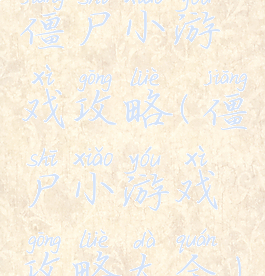 jiāng shī xiǎo yóu
僵尸小游
xì gōng lüè jiāng
戏攻略(僵
shī xiǎo yóu xì
尸小游戏
gōng lüè dà quán
攻略大全)